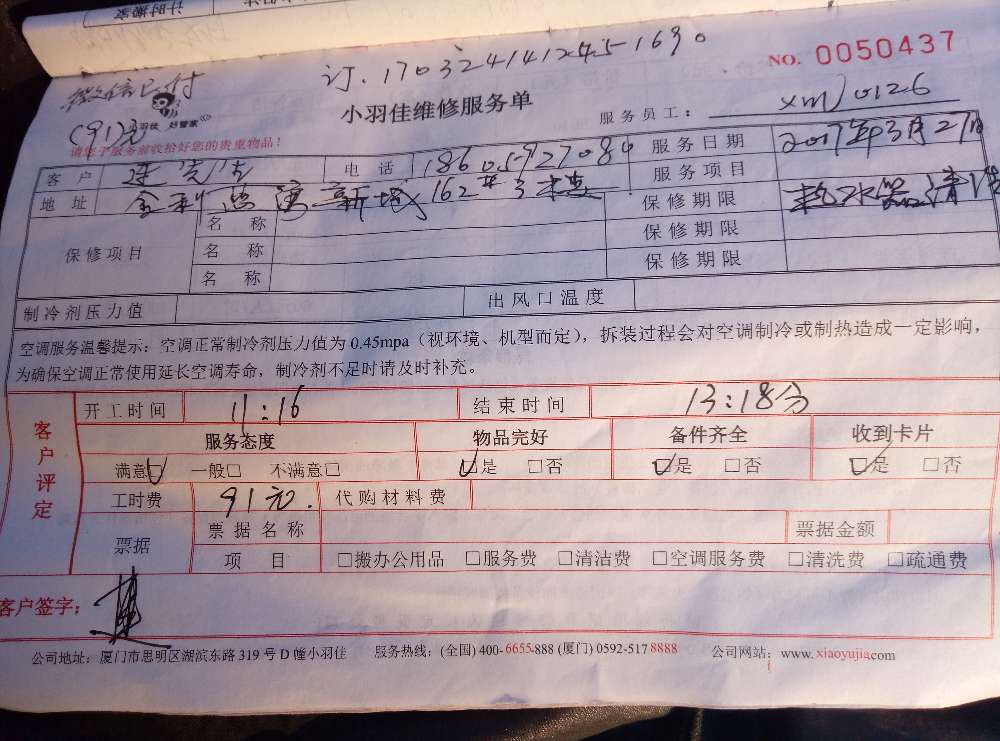 计时搬家
微信已付
订.170324141245-1690
NO. 0050437
(91)
羽佳 好管家
小羽佳维修服务单
服务员工： xm10126
请您于服务前收拾好您的贵重物品！
客户 连先生 电话 18605927084 服务日期 2017年3月27日
地址 新城162#3楼 服务项目 热水器清洗
保修项目 名称 保修期限
名称 保修期限
名称 保修期限
制冷剂压力值 出风口温度
空调服务温馨提示：空调正常制冷剂压力值为0.45mpa（视环境、机型而定），拆装过程会对空调制冷或制热造成一定影响，
为确保空调正常使用延长空调寿命，制冷剂不足时请及时补充。
客户评定
开工时间 11:16 结束时间 13:18分
服务态度 物品完好 备件齐全 收到卡片
满意☑ 一般□ 不满意□ ☑是 □否 ☑是 □否 ☑是 □否
工时费 91元. 代购材料费
票据 票据名称 票据金额
项目 □搬办公用品 □服务费 □清洁费 □空调服务费 □清洗费 □疏通费
客户签字：
公司地址：厦门市思明区湖滨东路319号D幢小羽佳 服务热线：(全国) 400-6655-888 (厦门) 0592-517 8888 公司网站：www.xiaoyujia.com